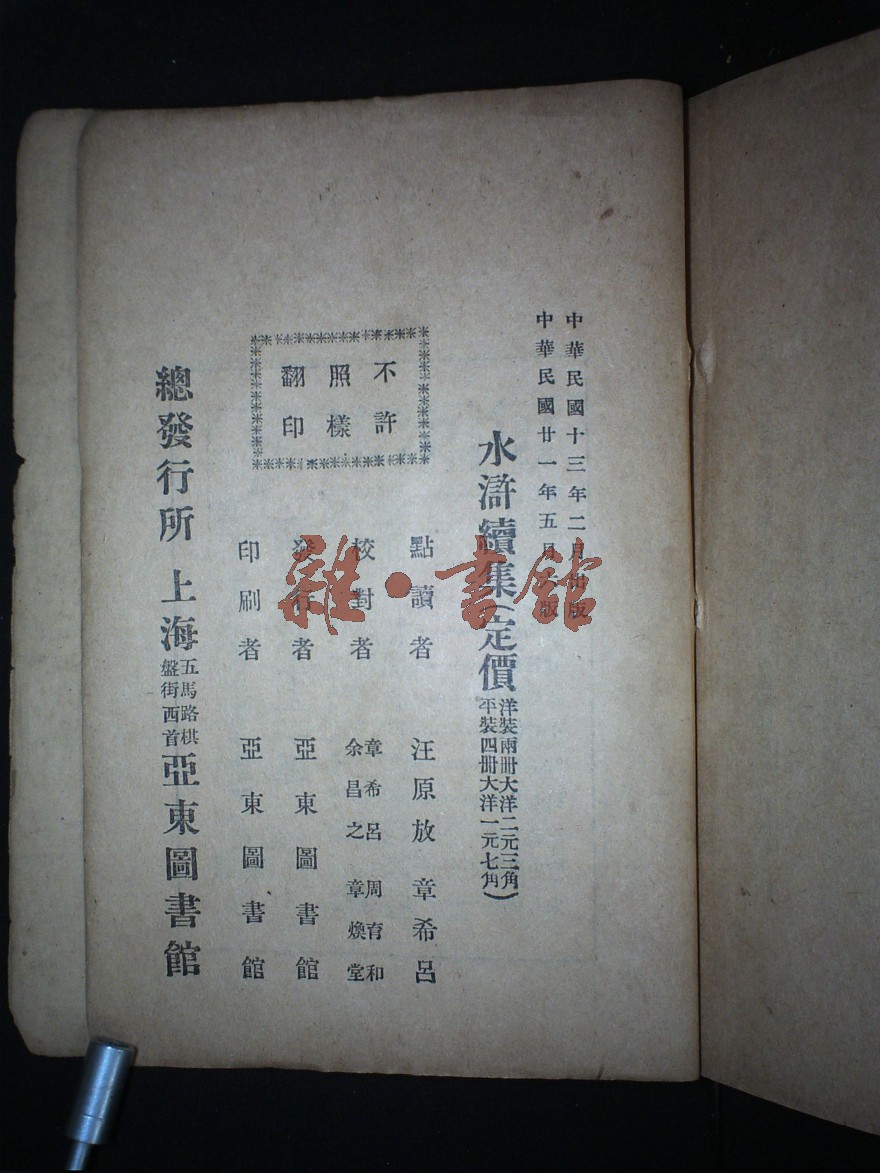 中華民國十三年二月出版
中華民國廿一年五月六版
水滸續集（定價 洋裝兩冊大洋二元三角
平裝四冊大洋一元七角）
不許
照樣
翻印
點讀者 汪原放 章希呂
校對者 章希呂 周育和
余昌之 章煥堂
發行者 亞東圖書館
印刷者 亞東圖書館
總發行所 上海 五馬路棋
盤街西首 亞東圖書館
雜·書館